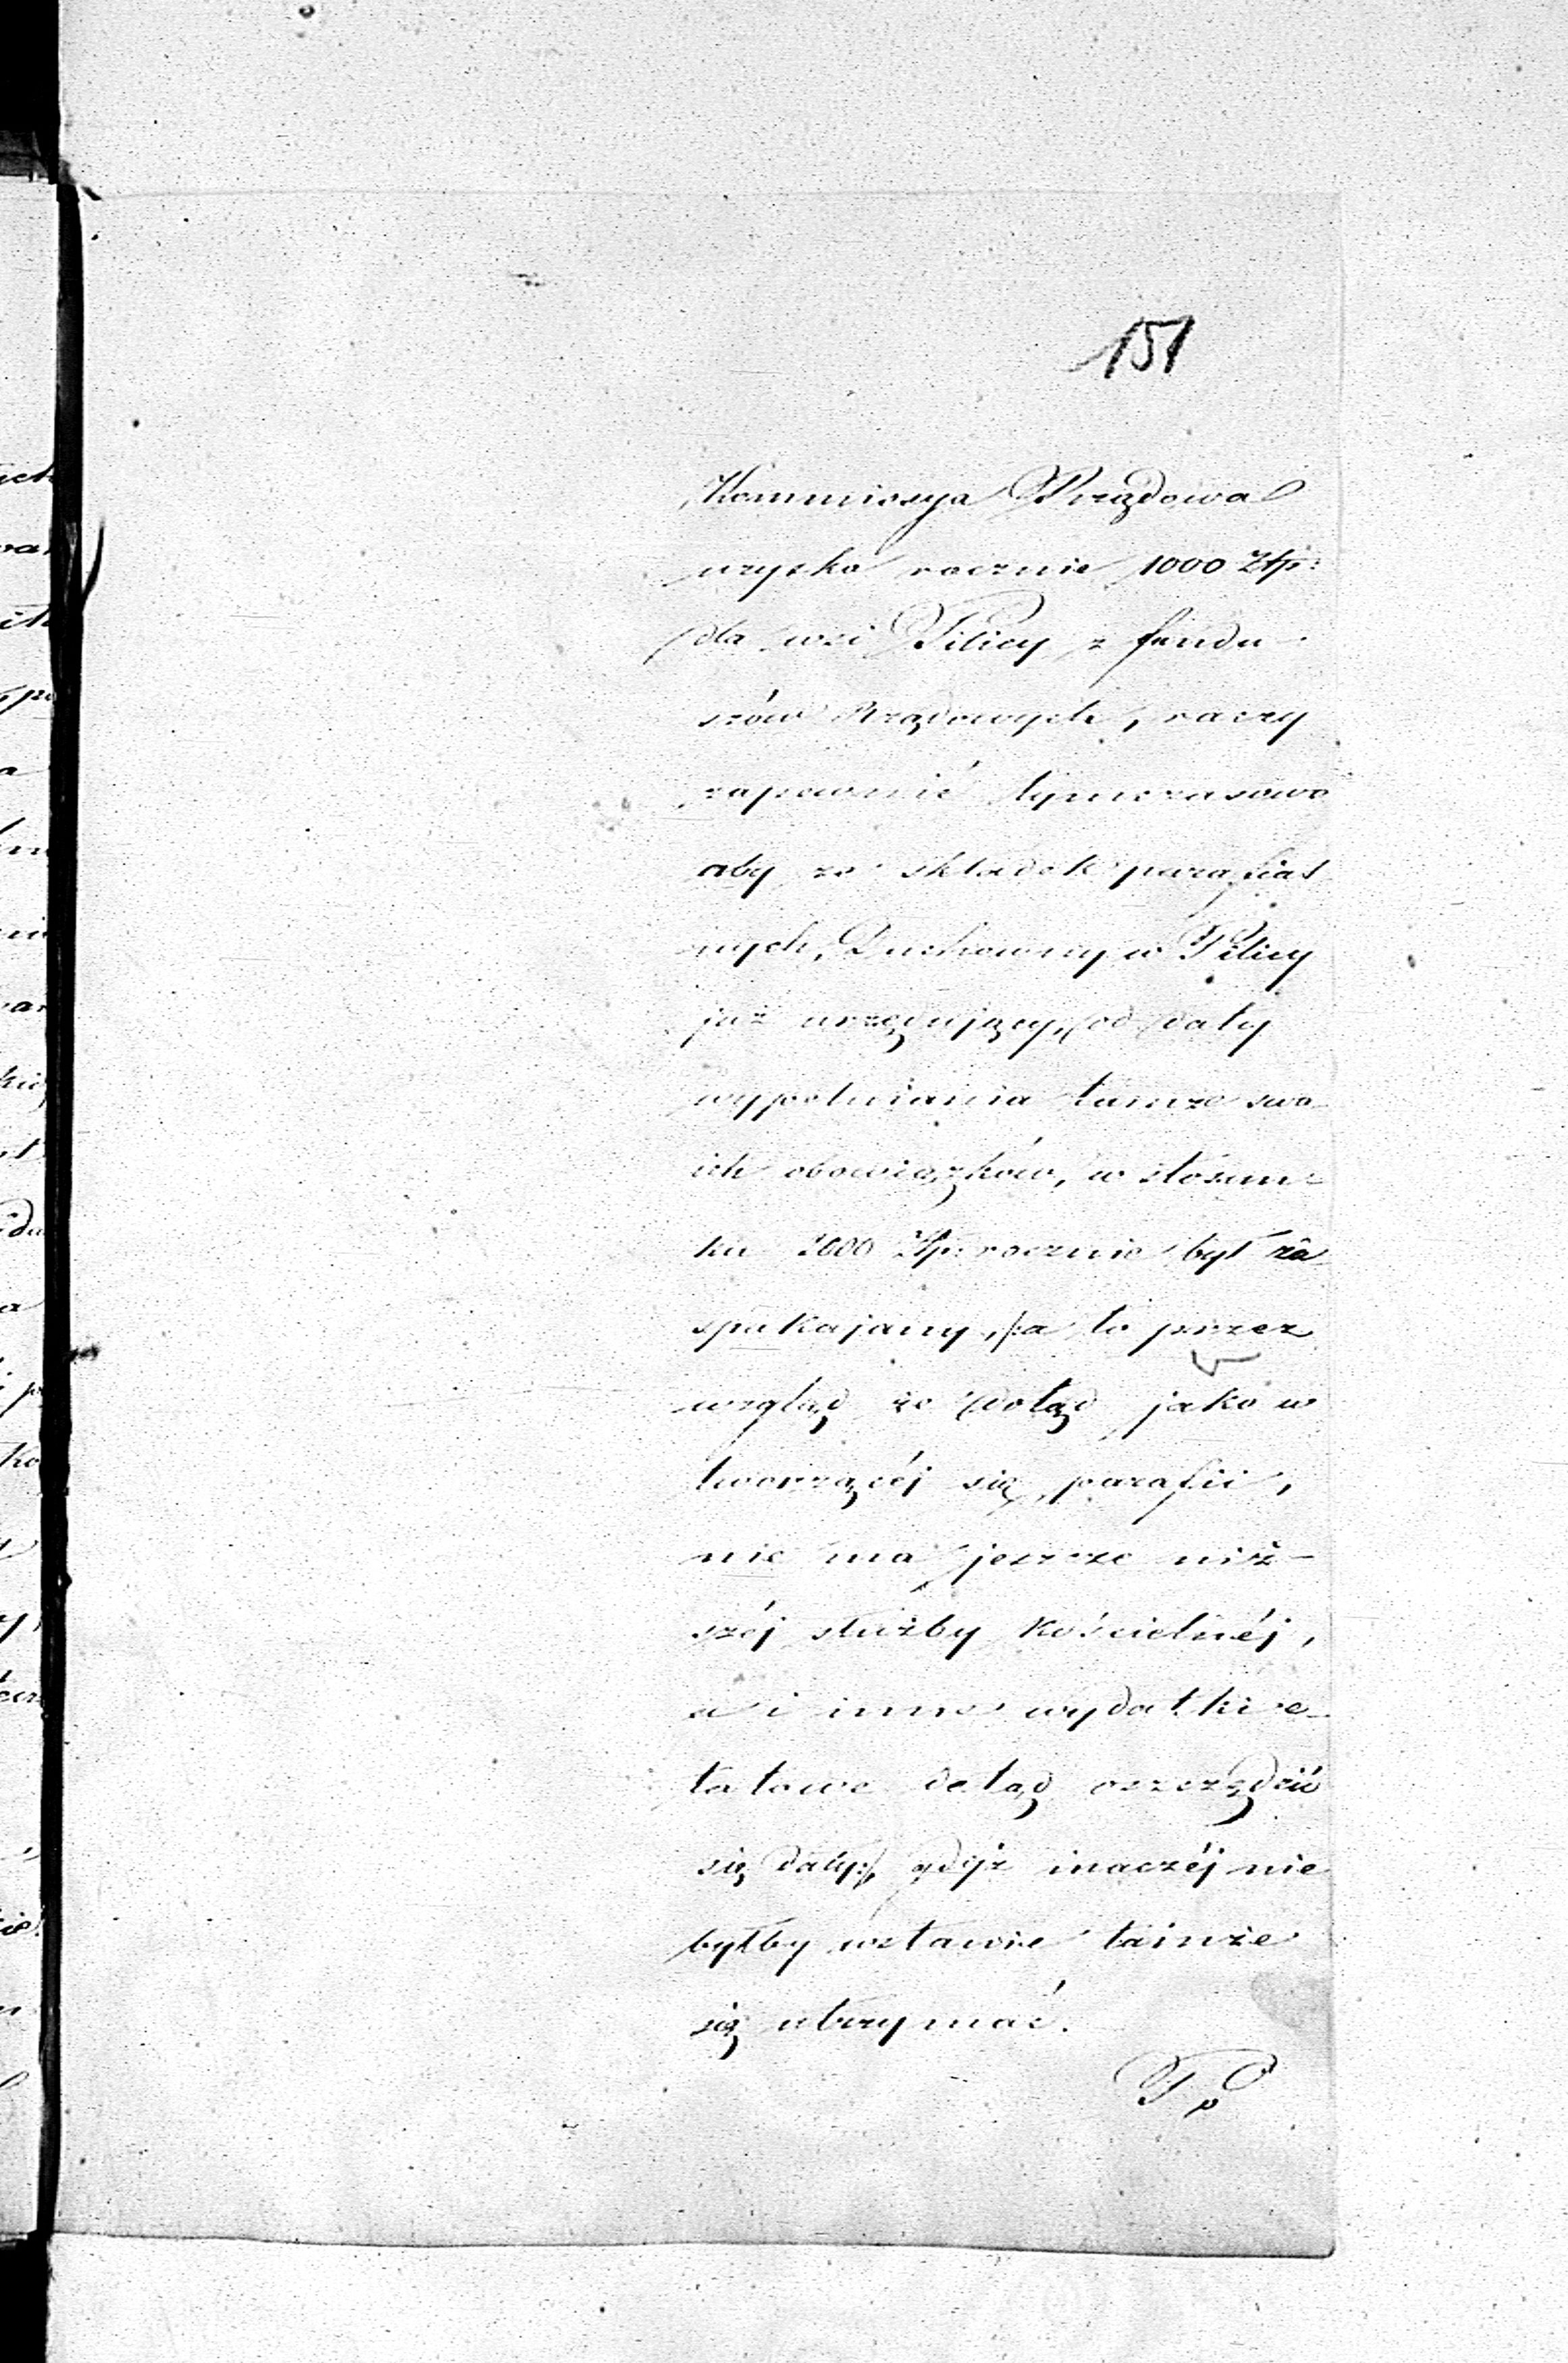 151
Kommissya Rządowa
uzyska rocznie 1000 Złp:
dla wsi Pilicy z fundu-
szów Rządowych, raczy
zapewnić tymczasowo
aby ze składek parafial
nych, Duchowny w Pilicy
już urzędujący, od daty
wypełniania tamże swo
ich obowiązków, w stosun-
ku 2000 Złp: rocznie był za
spakajany, /:a to przez
wzgląd że dotąd jako w
tworzącéj się parafii,
nie ma jeszcze niż-
széj służby kościelnéj,
a i inne wydatki e-
tatowe dotąd oszczędzić
się dały:/, gdyż inaczéj nie
byłby wstanie tamże
się utrzymać.